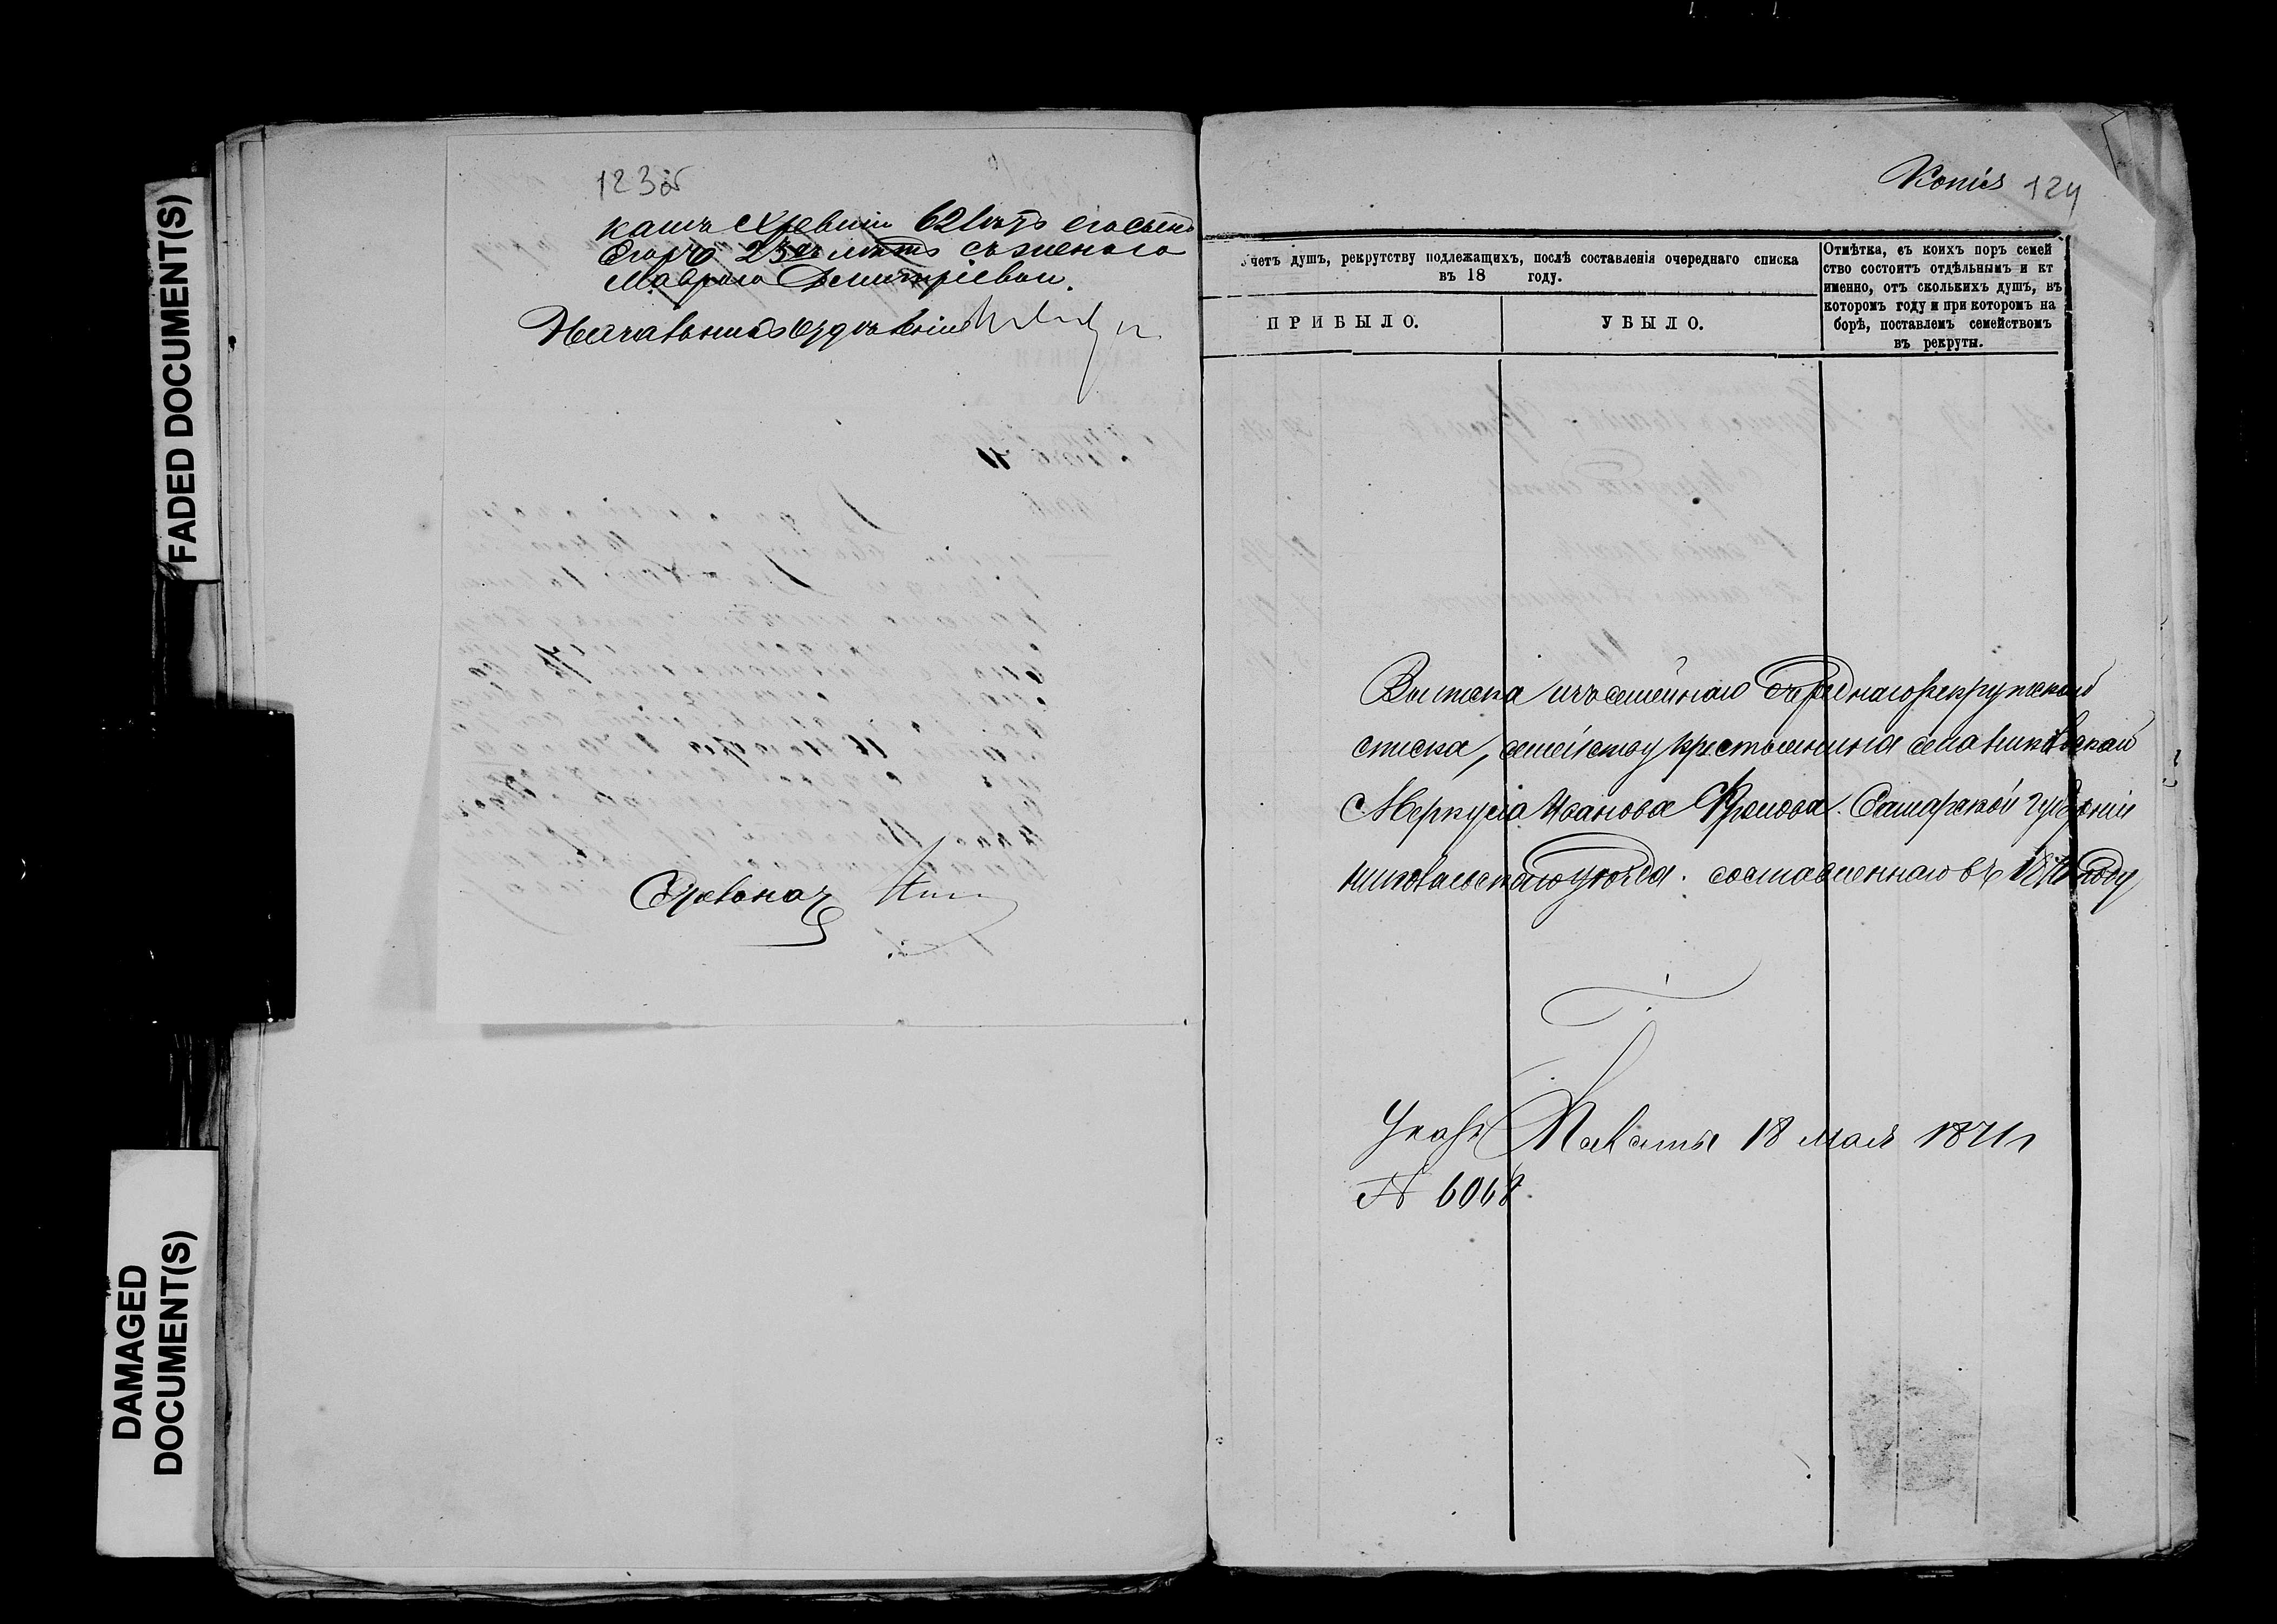 FADED DOCUMENT(S)
DAMAGED
DOCUMENT(S)
123об
62 лѣтъ его сынъ
Егоръ 23хъ лѣтъ съ женою
Маврою Дмитріевой.
Начальникъ отдѣленія
Копія 124
четъ душъ, рекрутству подлежащихъ, послѣ составленія очереднаго списка
въ 18 году.
ПРИБЫЛО.
УБЫЛО.
Отмѣтка, съ коихъ поръ семей
ство состоитъ отдѣльнымъ и кт
именно, отъ сколькихъ душъ, въ
которомъ году и при которомъ на
борѣ, поставлемъ семействомъ
въ рекруты.
Выписка изъ семейнаго очереднаго рекрутскаго
списка, семейству крестьянина села
Меркула Иванова Фролова. Самарской губерніи
Николаевскаго уѣзда. составленнаго въ году
Указъ Палаты 18 мая 1871 г
№ 6068.